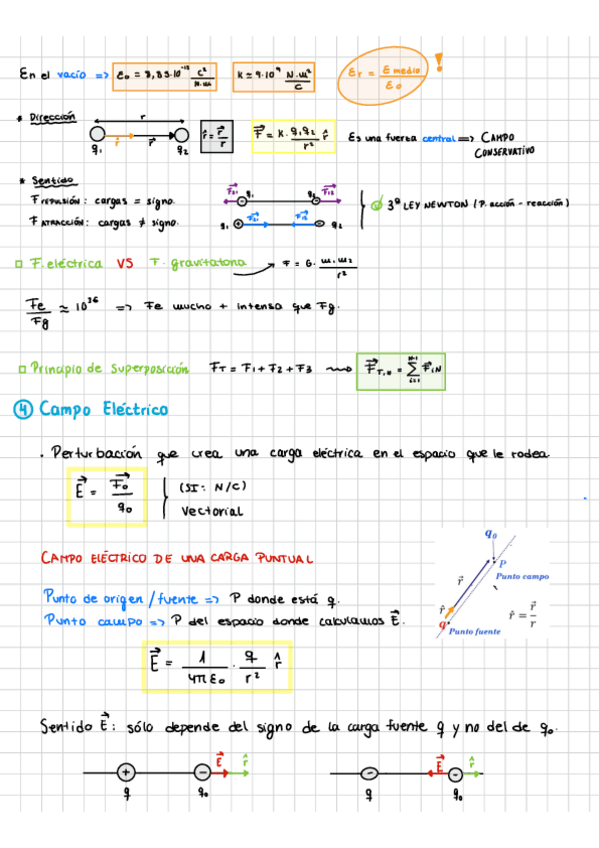 En el vacío => ε₀ = 8,85·10⁻¹² C²/N·m² K ≃ 9·10⁹ N·m²/C εr = ε medio/ε₀ !
* Dirección r
r̂ r⃗ r̂ = r⃗/r F⃗ = K· q₁q₂/r² r̂ Es una fuerza central => CAMPO
q₁ q₂ CONSERVATIVO
* Sentido
F REPULSIÓN: cargas = signo. F⃗₂₁ q₁ q₂ F⃗₁₂ 3ª LEY NEWTON (P. acción - reacción)
F ATRACCIÓN: cargas ≠ signo. q₁ F⃗₂₁ F⃗₁₂ q₂
F. eléctrica VS F. gravitatoria F = G· m₁·m₂/r²
Fe/Fg ≃ 10³⁶ => Fe mucho + intensa que Fg.
Principio de Superposición F_T = F₁ + F₂ + F₃ F⃗_T,N = Σ_{i=1}^{N-1} F⃗_iN
④ Campo Eléctrico
· Perturbación que crea una carga eléctrica en el espacio que le rodea.
E⃗ = F⃗₀/q₀ (SI: N/C)
Vectorial
CAMPO ELÉCTRICO DE UNA CARGA PUNTUAL
q₀
P
Punto campo
r⃗
r̂ r̂ = r⃗/r
q
Punto fuente
Punto de origen/fuente => P donde está q.
Punto campo => P del espacio donde calculamos E⃗.
E⃗ = 1/4πε₀ · q/r² r̂
Sentido E⃗: sólo depende del signo de la carga fuente q y no del de q₀.
+ - E⃗ r̂ - E⃗ - r̂
q q₀ q q₀